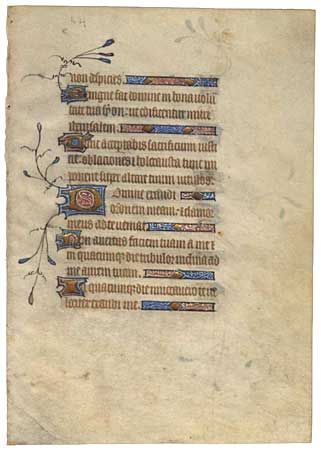 non despicies.
Benigne fac domine in bona volu
tate tua syon: ut edificentur muri
iherusalem.
Tunc acceptabis sacrificium iusti
cie oblaciones et holocausta tunc im
ponent super altare tuum vitulos.
Domine exaudi
orationem meam: et clamor
meus ad te veniat
Non avertas faciem tuam a me in
quacumque die tribulor inclina ad
me aurem tuam.
In quacumque die invocavero te ve
lociter exaudi me.